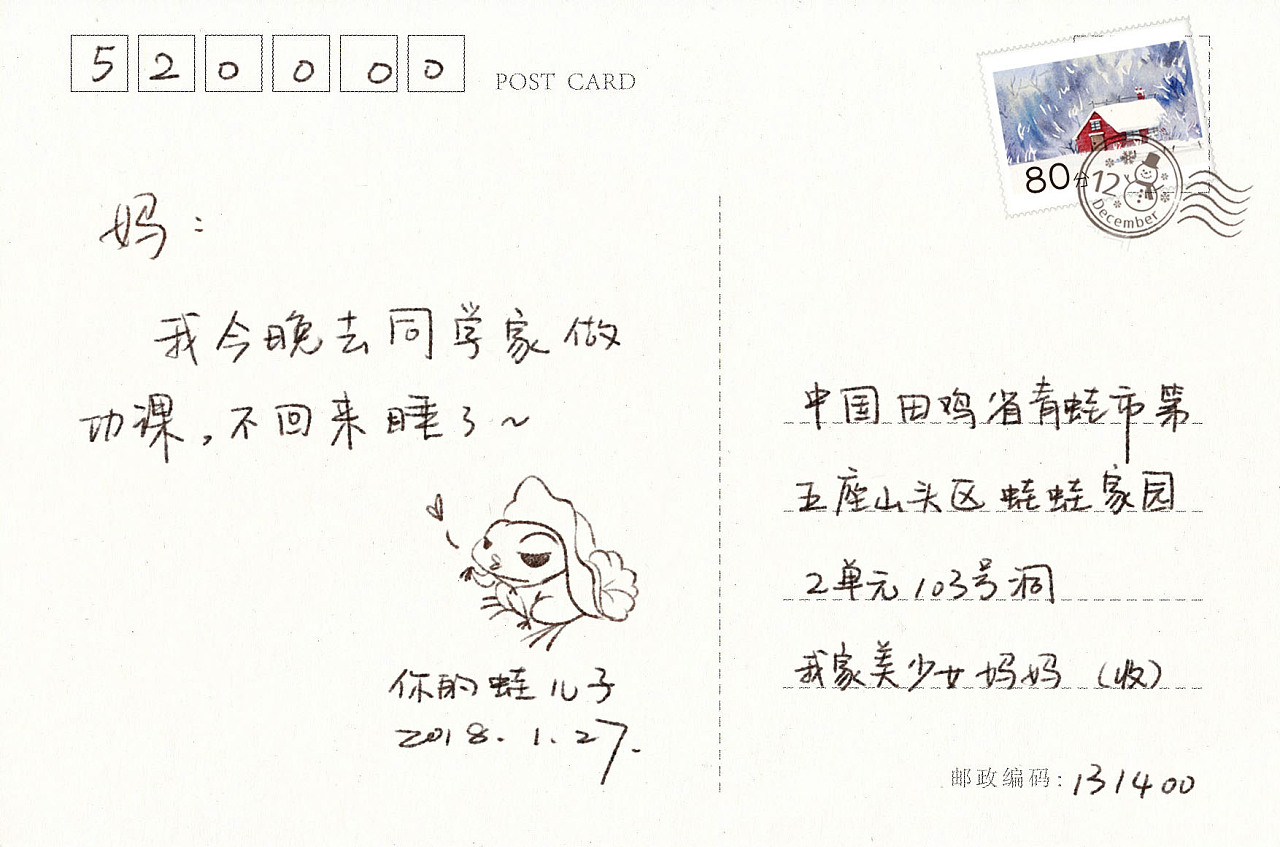 520000
POST CARD
80分
12
December
妈：
我今晚去同学家做
功课，不回来睡了~
你的蛙儿子
2018.1.27.
中国田鸡省青蛙市第
五座山头区蛙蛙家园
2单元103号洞
我家美少女妈妈（收）
邮政编码：131400